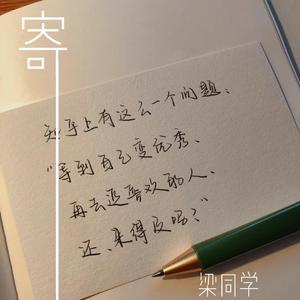 寄
知乎上有这么一个问题：
“等到自己变优秀、
再去追喜欢的人、
还、来得及吗？”
梁同学